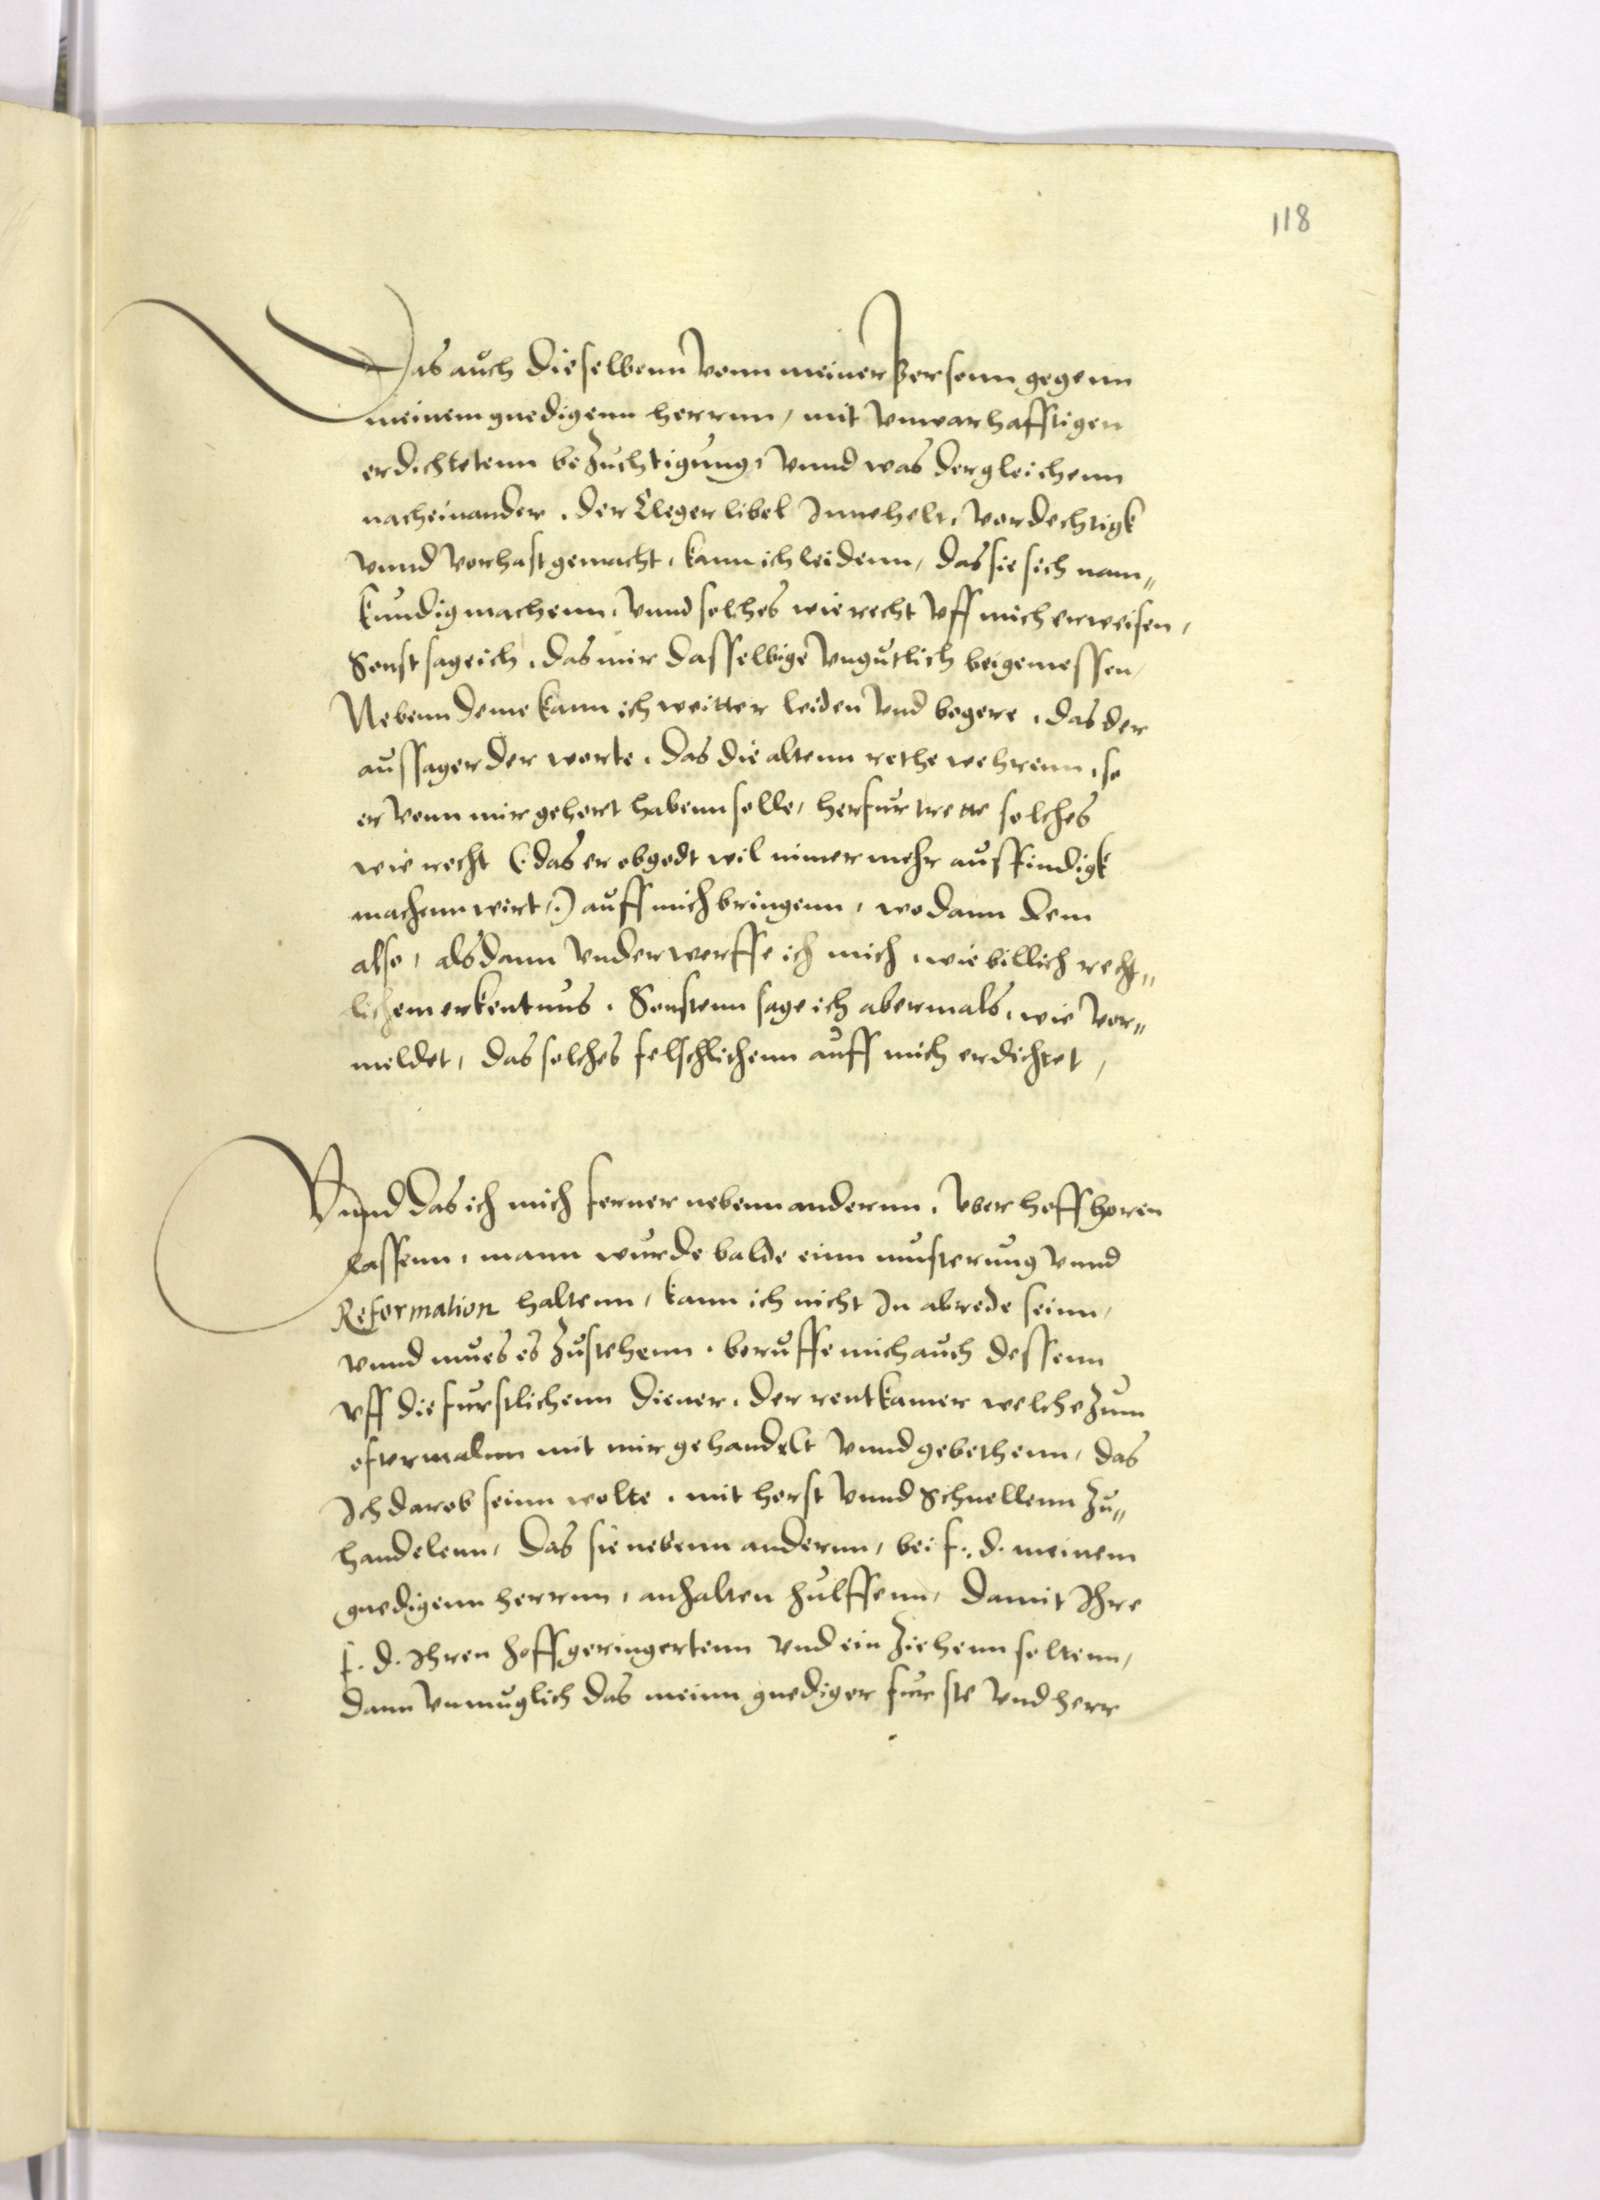 118
Das auch dieselbenn vonn meiner Persönn gegenn
meinem gnedigenn herrnn, mit vnwarhafftigen
erdichtetenn bezuchtigung, vnnd was dergleichenn
nacheinander, der Cleger libel Innehelt, vordechtigk
vnnd vorhast gemacht, kann ich leidenn, das sie sich nam„
kundig machenn, vnnd solches wie recht vff mich erweisen,
Sonst sage ich, das mir dasselbige vngutlich beigemessen,
Nebenn deme kann ich weitter leiden vnd begere, das der
aussager der worte, das die altenn rethe wehrenn, so
er vonn mir gehort habenn solle, herfur trette solches
wie recht (: das er obgodt wil nimermehr ausfindigk
machenn wirt :) auff mich bringenn, wo dann dem
also, alsdann vnderwerffe ich mich, wie billich recht„
lichem erkentnus, Sonstenn sage ich abermals, wie vor„
meldet, das solches felschlichenn auff mich erdichtet,
Vnnd das ich mich ferner nebenn andernn, vber hoff horen
lassenn, mann wurde balde einn musterung vnnd
Reformation haltenn, kann ich nicht In abrede seinn,
vnnd mues es zustehenn, beruffe mich auch dessenn
vff die furstlichenn diener, der rentkamer welche zum
oftermalnn mit mir gehandelt vnnd gebethenn, das
Ich darob seinn wolte, mit herst vnnd Schnellenn zu„
handelenn, das sie nebenn andernn, bei f. d. meinem
gnedigenn herrnn, anhalten hulffenn, damit Ihre
f. d. Ihren hoff geringertenn vnd ein ziehenn soltenn,
dann vnmuglich das meinn gnediger furste vnd herr